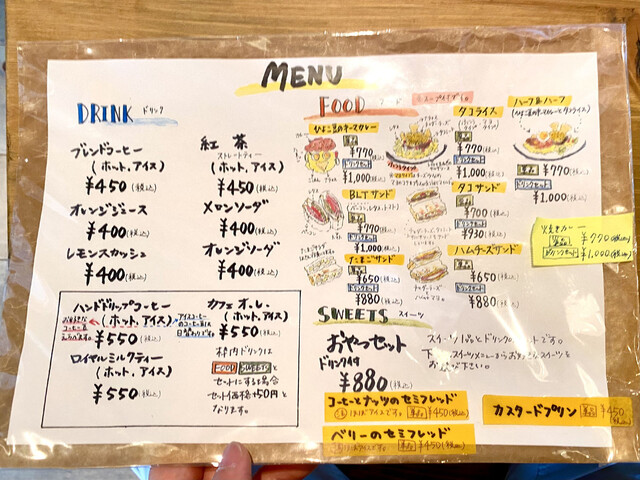 MENU
DRINK ドリンク
ブレンドコーヒー
(ホット,アイス)
¥450(税込)
オレンジジュース
¥400(税込)
レモンスカッシュ
¥400(税込)
紅茶
ストレートティー
(ホット,アイス)
¥450(税込)
メロンソーダ
¥400(税込)
オレンジソーダ
¥400(税込)
ハンドドリップコーヒー
(ホット,アイス)
お好きな
コーヒー豆
¥550(税込)
アイスコーヒー
ロイヤルミルクティー
(ホット,アイス)
¥550(税込)
カフェオレ
(ホット,アイス)
¥550(税込)
枠内ドリンクは
FOOD SWEETSと
セットにする場合
セット価格+50円と
なります。
FOOD フード
ひよこ豆のキーマカレー
単品
¥770(税込)
ドリンクセット
¥1,000(税込)
タコライス
単品
¥770(税込)
ドリンクセット
¥1,000(税込)
ハーフ&ハーフ
単品
¥770(税込)
ドリンクセット
¥1,000(税込)
BLTサンド
単品
¥770(税込)
ドリンクセット
¥1,000(税込)
タコサンド
単品
¥700(税込)
ドリンクセット
¥930(税込)
たまごサンド
単品
¥650(税込)
ドリンクセット
¥880(税込)
ハムチーズサンド
単品
¥650(税込)
ドリンクセット
¥880(税込)
焼きカレー
単品 ¥770(税込)
ドリンクセット ¥1,000(税込)
SWEETS スイーツ
おやつセット
ドリンク付
¥880(税込)
スイーツ1品とドリンクのセットです。
下のスイーツメニューからお好きなスイーツを
お選び下さい。
コーヒーとナッツのセミフレッド
単品 ¥450(税込)
ベリーのセミフレッド
単品 ¥450(税込)
カスタードプリン 単品 ¥450(税込)